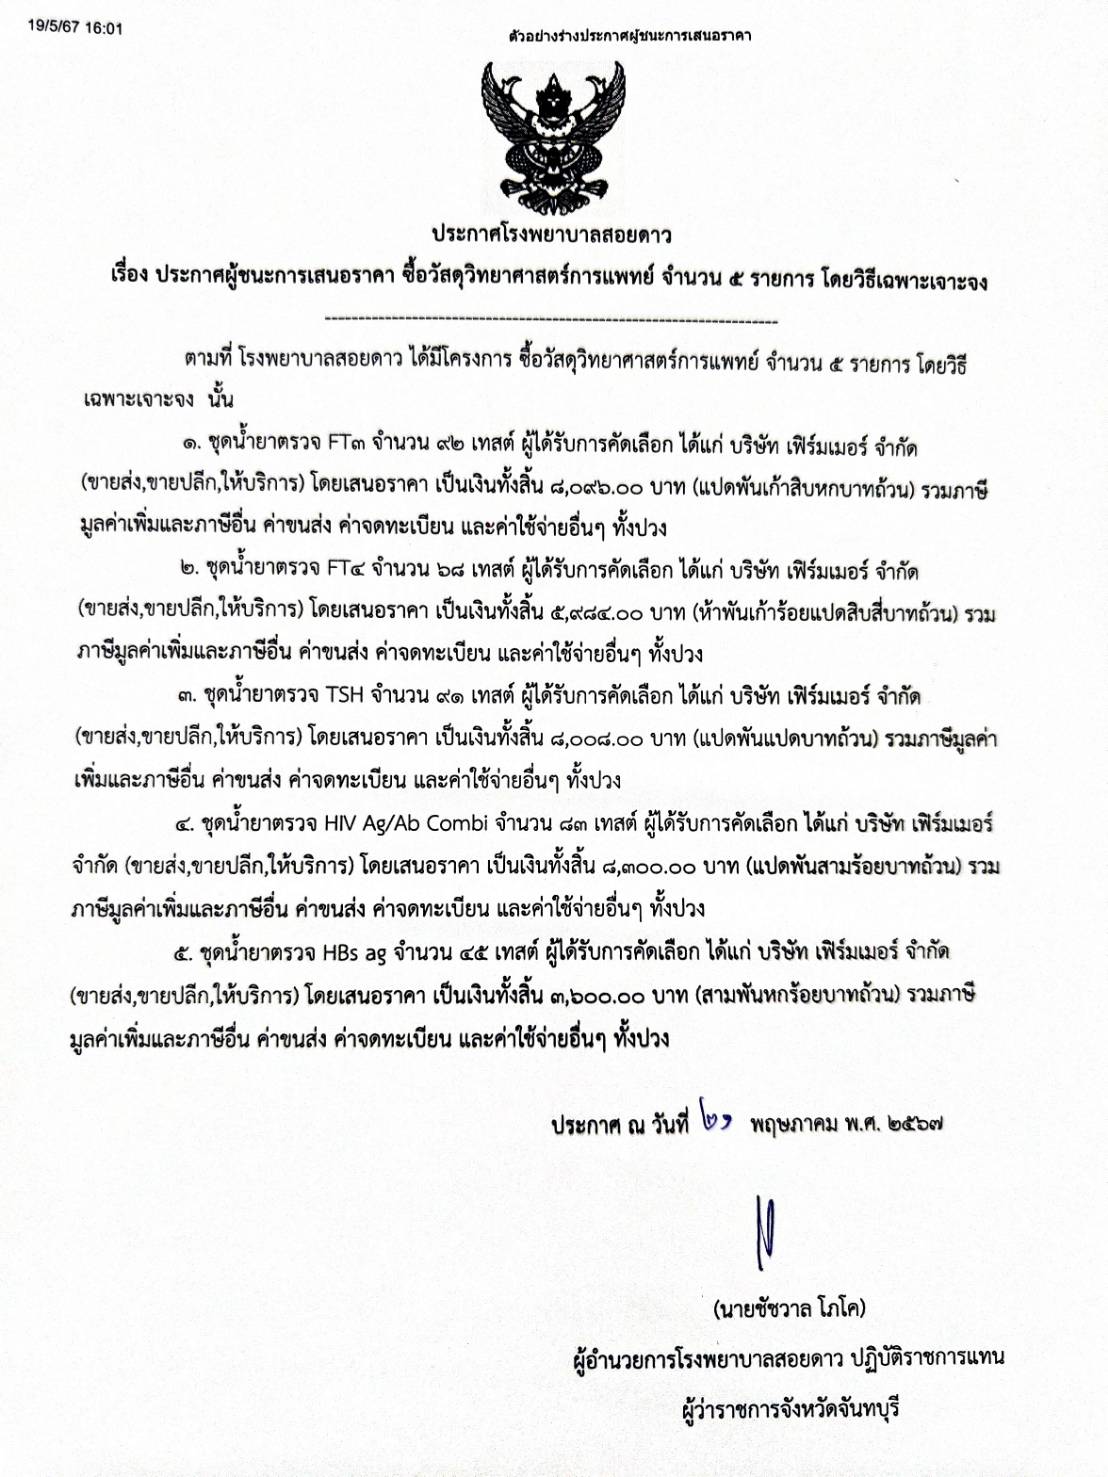 19/5/67 16:01
ตัวอย่างร่างประกาศผู้ชนะการเสนอราคา
ประกาศโรงพยาบาลสอยดาว
เรื่อง ประกาศผู้ชนะการเสนอราคา ซื้อวัสดุวิทยาศาสตร์การแพทย์ จำนวน ๕ รายการ โดยวิธีเฉพาะเจาะจง
--------------------------------------------------------------------
ตามที่ โรงพยาบาลสอยดาว ได้มีโครงการ ซื้อวัสดุวิทยาศาสตร์การแพทย์ จำนวน ๕ รายการ โดยวิธี
เฉพาะเจาะจง นั้น
๑. ชุดน้ำยาตรวจ FT๓ จำนวน ๙๒ เทสต์ ผู้ได้รับการคัดเลือก ได้แก่ บริษัท เฟิร์มเมอร์ จำกัด
(ขายส่ง,ขายปลีก,ให้บริการ) โดยเสนอราคา เป็นเงินทั้งสิ้น ๘,๐๙๖.๐๐ บาท (แปดพันเก้าสิบหกบาทถ้วน) รวมภาษี
มูลค่าเพิ่มและภาษีอื่น ค่าขนส่ง ค่าจดทะเบียน และค่าใช้จ่ายอื่นๆ ทั้งปวง
๒. ชุดน้ำยาตรวจ FT๔ จำนวน ๖๘ เทสต์ ผู้ได้รับการคัดเลือก ได้แก่ บริษัท เฟิร์มเมอร์ จำกัด
(ขายส่ง,ขายปลีก,ให้บริการ) โดยเสนอราคา เป็นเงินทั้งสิ้น ๕,๙๘๔.๐๐ บาท (ห้าพันเก้าร้อยแปดสิบสี่บาทถ้วน) รวม
ภาษีมูลค่าเพิ่มและภาษีอื่น ค่าขนส่ง ค่าจดทะเบียน และค่าใช้จ่ายอื่นๆ ทั้งปวง
๓. ชุดน้ำยาตรวจ TSH จำนวน ๙๑ เทสต์ ผู้ได้รับการคัดเลือก ได้แก่ บริษัท เฟิร์มเมอร์ จำกัด
(ขายส่ง,ขายปลีก,ให้บริการ) โดยเสนอราคา เป็นเงินทั้งสิ้น ๘,๐๐๘.๐๐ บาท (แปดพันแปดบาทถ้วน) รวมภาษีมูลค่า
เพิ่มและภาษีอื่น ค่าขนส่ง ค่าจดทะเบียน และค่าใช้จ่ายอื่นๆ ทั้งปวง
๔. ชุดน้ำยาตรวจ HIV Ag/Ab Combi จำนวน ๘๓ เทสต์ ผู้ได้รับการคัดเลือก ได้แก่ บริษัท เฟิร์มเมอร์
จำกัด (ขายส่ง,ขายปลีก,ให้บริการ) โดยเสนอราคา เป็นเงินทั้งสิ้น ๘,๓๐๐.๐๐ บาท (แปดพันสามร้อยบาทถ้วน) รวม
ภาษีมูลค่าเพิ่มและภาษีอื่น ค่าขนส่ง ค่าจดทะเบียน และค่าใช้จ่ายอื่นๆ ทั้งปวง
๕. ชุดน้ำยาตรวจ HBs ag จำนวน ๔๕ เทสต์ ผู้ได้รับการคัดเลือก ได้แก่ บริษัท เฟิร์มเมอร์ จำกัด
(ขายส่ง,ขายปลีก,ให้บริการ) โดยเสนอราคา เป็นเงินทั้งสิ้น ๓,๖๐๐.๐๐ บาท (สามพันหกร้อยบาทถ้วน) รวมภาษี
มูลค่าเพิ่มและภาษีอื่น ค่าขนส่ง ค่าจดทะเบียน และค่าใช้จ่ายอื่นๆ ทั้งปวง
ประกาศ ณ วันที่ ๒๑ พฤษภาคม พ.ศ. ๒๕๖๗
(นายชัชวาล โภโค)
ผู้อำนวยการโรงพยาบาลสอยดาว ปฏิบัติราชการแทน
ผู้ว่าราชการจังหวัดจันทบุรี